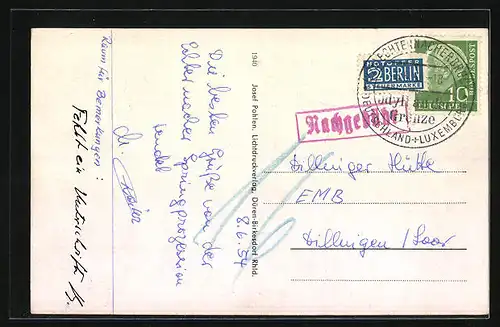 Raum für Bemerkungen:
Fehlt ein Unterschrift
Die besten Grüße von der
Echternacher Springprozession
sendet
8.6.54
1940 Josef Pohlen, Lichtdruckverlag, Düren-Birkesdorf Rhld.
NOTOPFER
2 BERLIN
STEUERMARKE
10
ECHTERNACHERBRÜCK
Idyll
Grenze
DEUTSCHLAND + LUXEMBURG
Nachgebühr
Dillinger Hütte
EMB
Dillingen / Saar